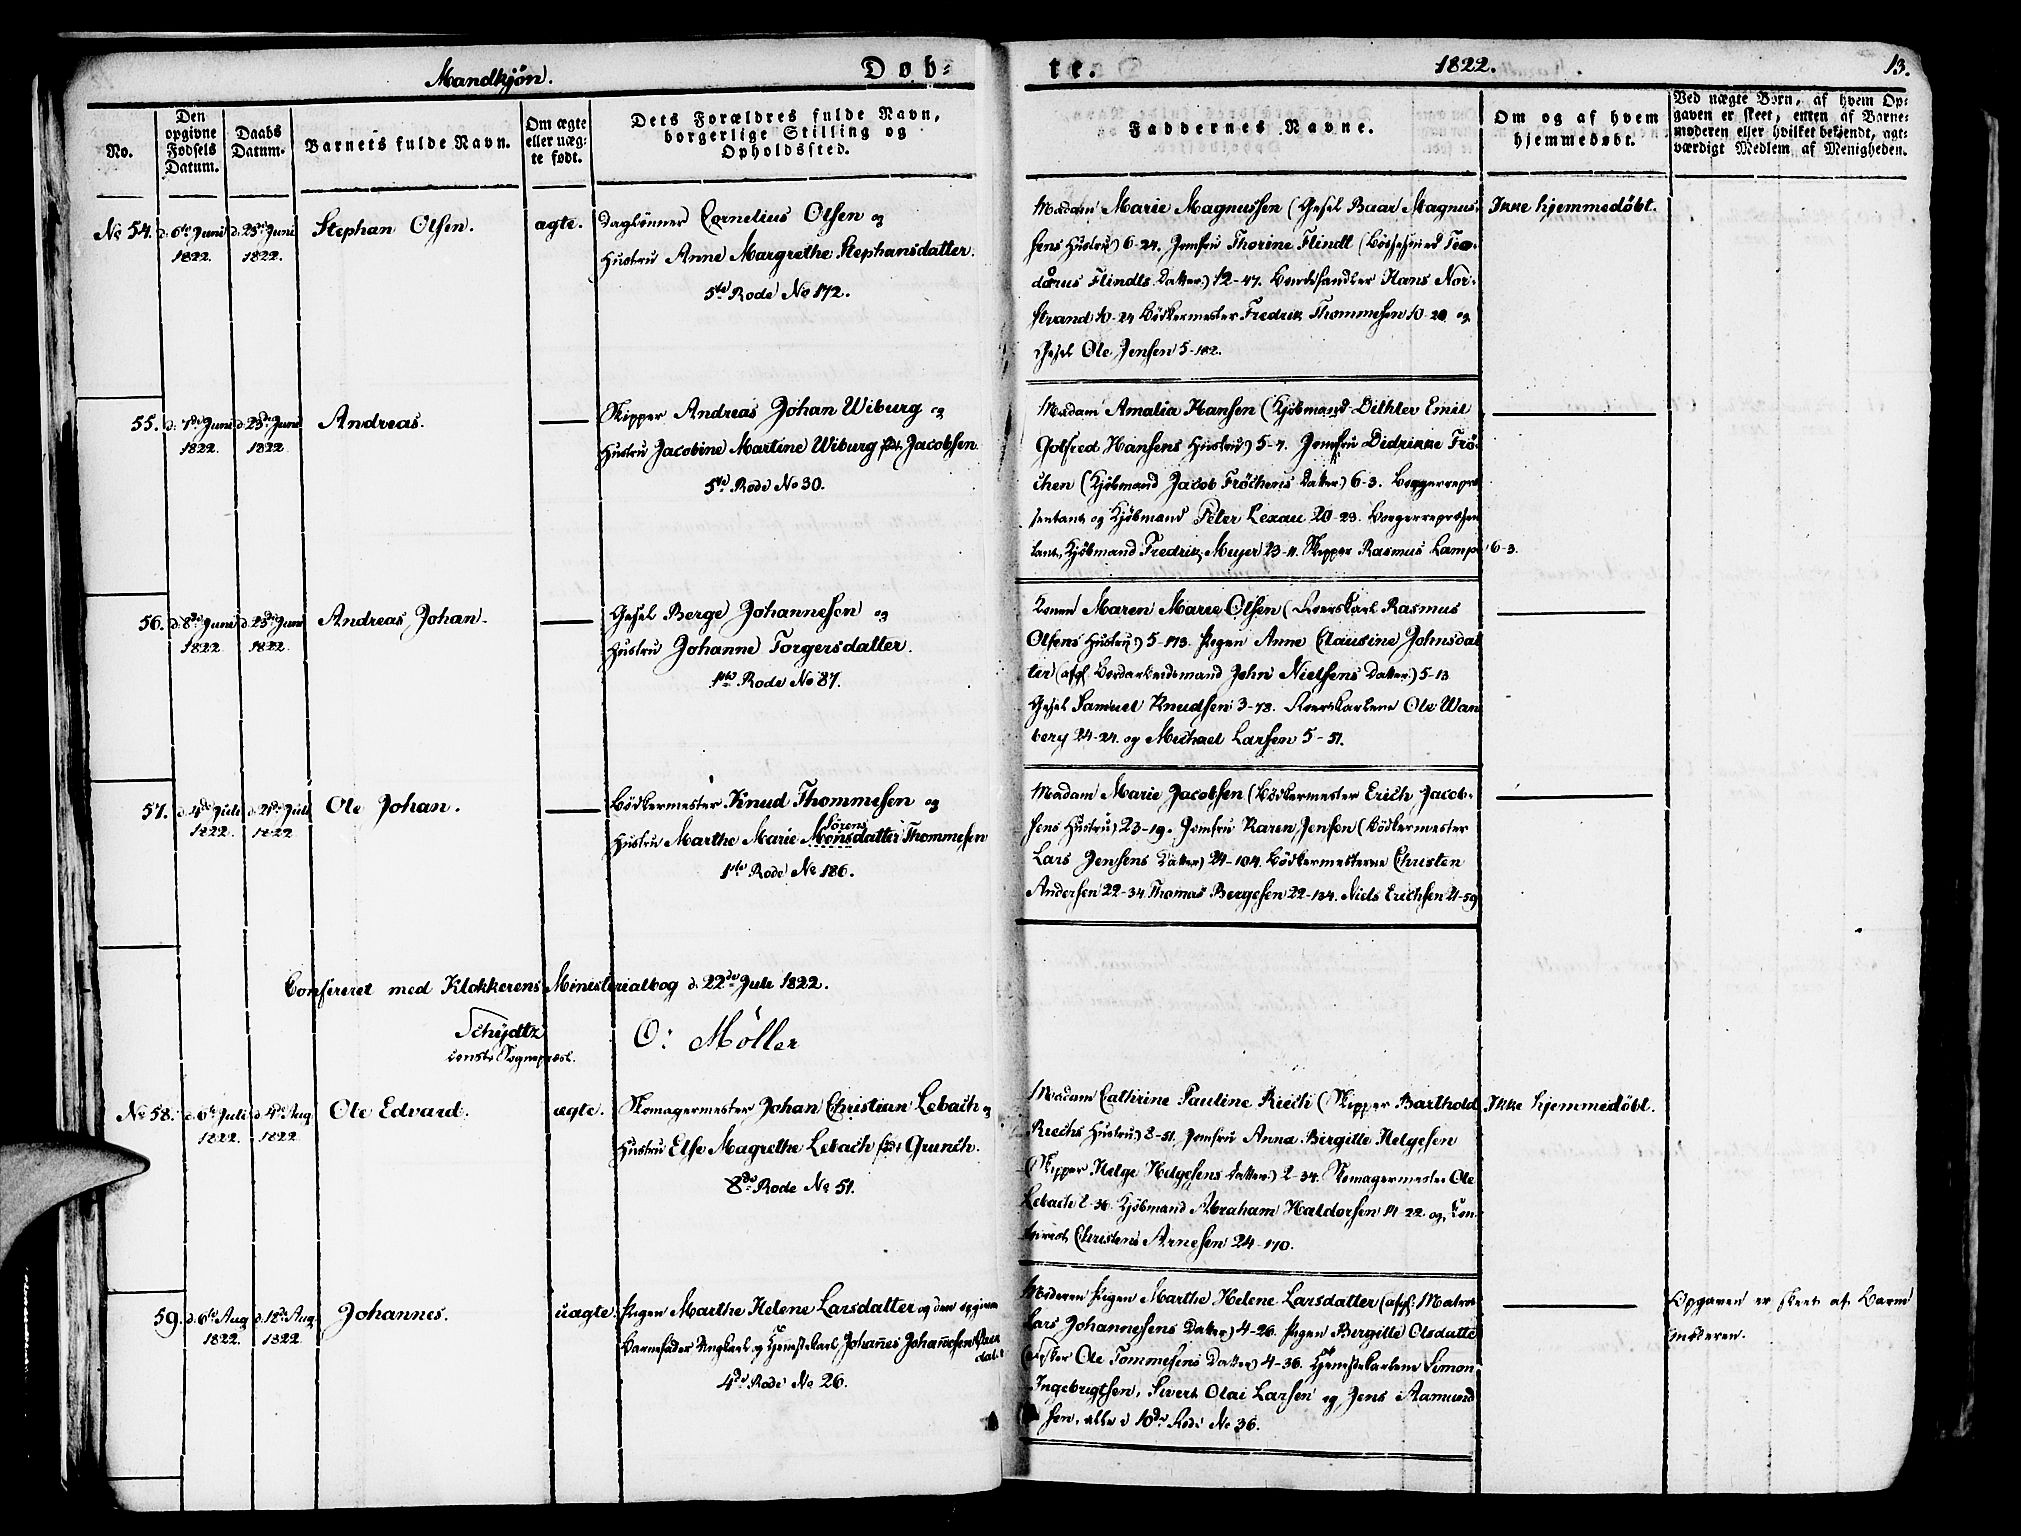 Mandkjøn.
Døb-
te.
1822.
13.
No.
Den opgivne Fødsels Datum.
Daabs Datum.
Barnets fulde Navn.
Om ægte eller uægte født.
Dets Forældres fulde Navn, borgerlige Stilling og Opholdssted.
Faddernes Navne.
Om og af hvem hjemmedøbt.
Ved uægte Børn, af hvem Opgaven er skeet, enten af Barnemoderen eller hvilket bekjendt, agtværdigt Medlem af Menigheden.
No 54. d. 6te Juni 1822. d. 23de Juni 1822. Stephan Olsen. ægte.
Daglønner Cornelius Olsen og
Hustru Anne Margrethe Stephansdatter.
5te Rode No 172.
Madam Marie Magnussen (Gesel Baar Magnus-
sens Hustru) 6-24. Jomfru Thorine Flindt (Bøssesmed Teo-
dorus Flindts Datter) 12-47. Handler Hans Nor-
strand 10-24 Bødkermester Fredrik Thommesen 10-20 og
Gesel Ole Jensen 5-182.
Ikke hjemmedøbt.
55. d. 7de Juni 1822. d. 23de Juni 1822 Andreas. —
Skipper Andreas Johan Wiburg og
Hustru Jacobine Martine Wiburg født Jacobsen
5te Rode No 30.
Madam Amalia Hansen (Kjøbmand Dithlev Emil
Gotfred Hansens Hustru) 5-7. Jomfru Didrikke Frø-
chen (Kjøbmand Jacob Frøchens Datter) 6-3. Borgerrepræ
sentant og Kjøbmand Peter Lexau 20-23. Borgerrepræsen
tant, Kjøbmand Fredrik Meyer 23-11. Skipper Rasmus Lampe 6-3.
56. d. 8de Juni 1822 d. 23de Juni 1822. Andreas Johan. —
Gesel Berge Johannesen og
Hustru Johanne Torgersdatter.
1ste Rode No 87.
Konen Maren Marie Olsen (Rorskarl Rasmus
Olsens Hustru) 5-173. Pigen Anne Clausine Johnsdat
ter (afg. Bordarbeidsmand John Nielsens Datter) 5-13
Gesel Samuel Knudsen 3-78. Rorskarlene Ole Wan
berg 24-24. og Michael Larsen 5-51.
57. d. 4de Juli 1822. d. 21de Juli 1822 Ole Johan. —
Bødkermester Knud Thommesen og
Sørens
Hustru Marthe Marie Monsdatter Thommesen
1ste Rode No 186.
Madam Marie Jacobsen (Bødkermester Erich Jacob-
sens Hustru) 23-19. Jomfru Karen Jensen (Bødkermester
Lars Jensens Datter) 24-104. Bødkermesterne Christen
Andersen 22-34. Thomas Bergesen 22-134. Niels Erichsen 21-59
Confereret med Klokkerens Ministerialbog d. 22de Juli 1822.
Schydtz
O: Møller
Sognepræst.
No 58. d. 6te Juli 1822. d. 4de Aug 1822. Ole Edvard. ægte.
Skomagermester Johan Christian Lebach og
Hustru Else Magrethe Lebach født Grunch.
8de Rode No 51.
Madam Cathrine Pauline Riech (Skipper Barthold
Riechs Hustru) 8-51. Jomfru Anna Birgitte Helgesen
(Skipper Helge Helgesens Datter) 2-34. Skomagermester Ole
Lebach 2-36. Kjøbmand Abraham Haldorsen 14-22. og
Christen Arnesen 24-170.
Ikke hjemmedøbt.
59. d. 6te Aug 1822. d. 12de Aug 1822 Johannes. uægte.
Pigen Marthe Helene Larsdatter og den opgivne
Barnefader Ungkarl og Hjemstekarl Johannes Johannesen
4de Rode No 26.
Moderen Pigen Marthe Helene Larsdatter (afg. Matros
Lars Johannesens Datter) 4-26. Pigen Bergitte Olsdatter
Ole Tommesens Datter) 4-36. Hjemstekarlene Simon
Ingebrigtsen, Sivert Olai Larsen og Jens Aamund
sen, alle i 10de Rode No 36.
Opgaven er skeet af Barne
moderen.